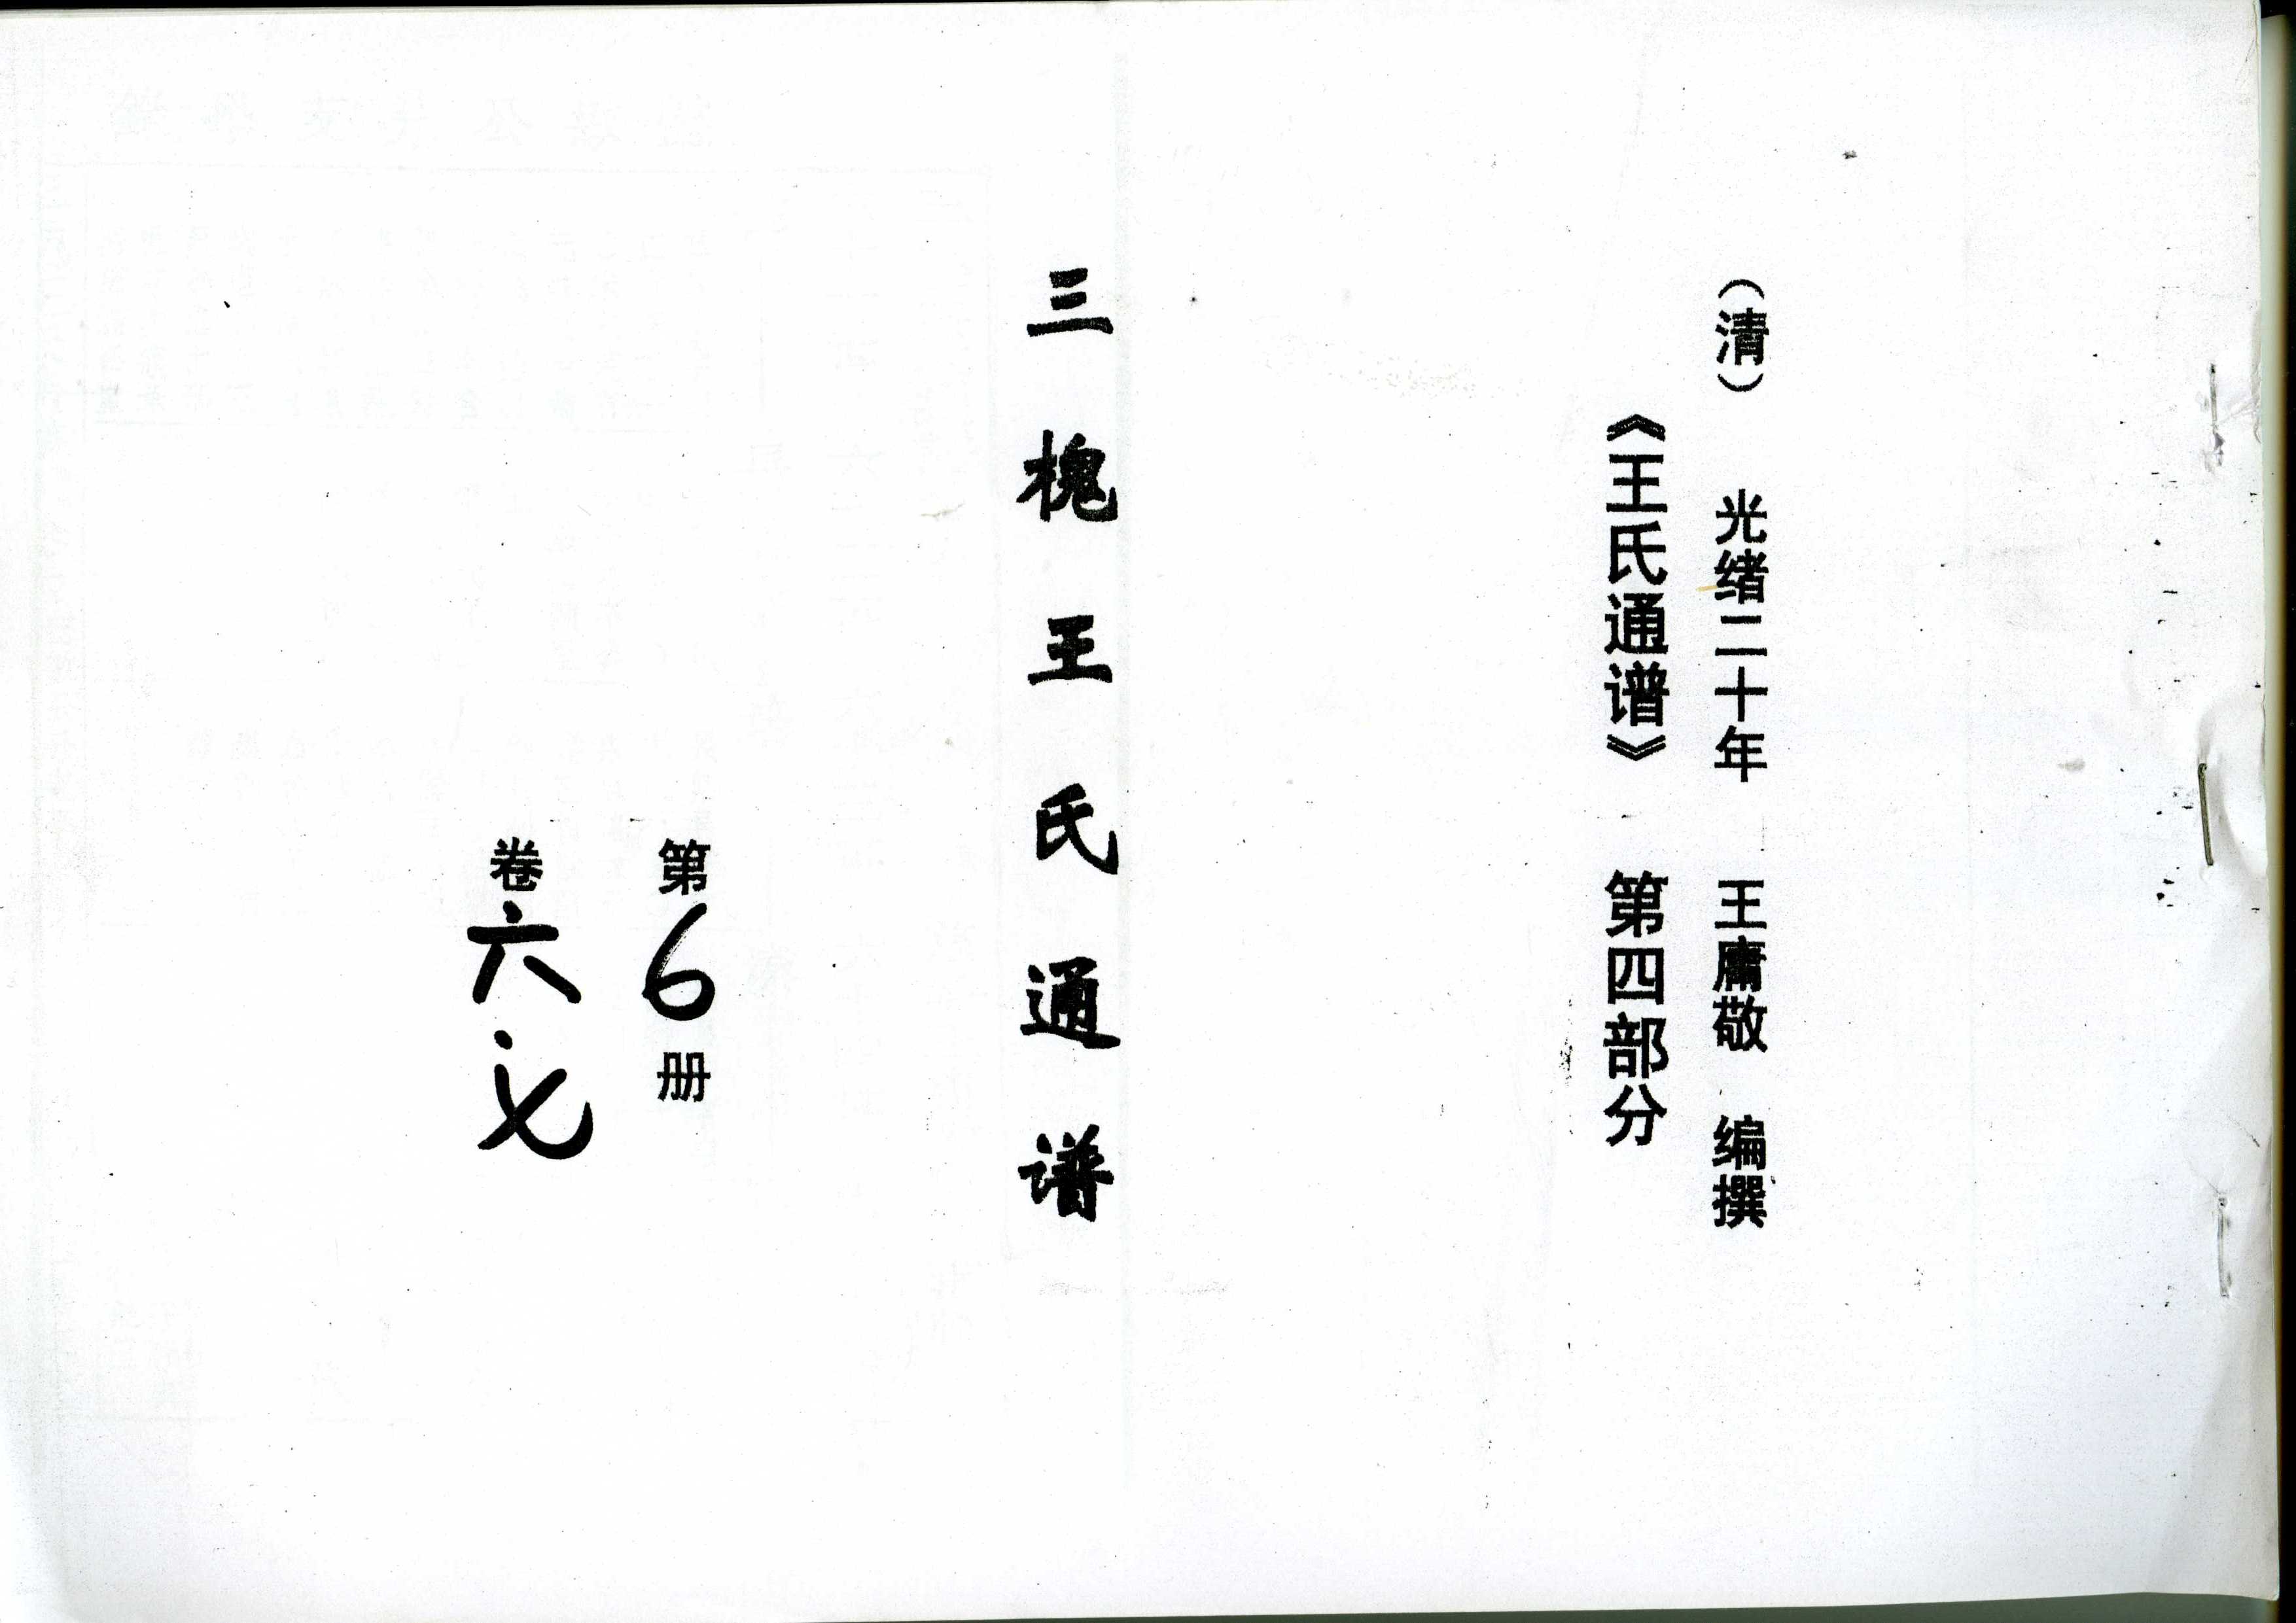 （清） 光绪二十年 王庸敬 编撰
《王氏通谱》 第四部分
三槐王氏通谱
第6册
卷六.七